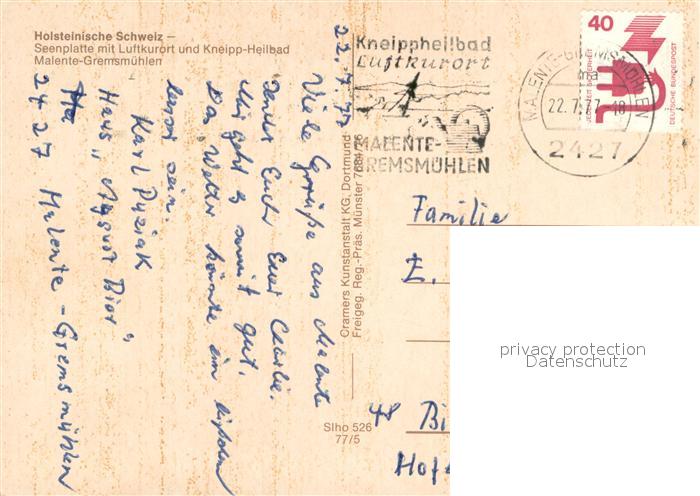 Holsteinische Schweiz –
Seenplatte mit Luftkurort und Kneipp-Heilbad
Malente-Gremsmühlen
22.7.77
Viele Grüße aus Malente
sendet Euch Euer
Mir geht es gut.
Das Wetter könnte ein bißchen
besser sein.
Karl
Haus „August Bier"
2427 Malente-Gremsmühlen
Cramers Kunstanstalt KG, Dortmund
Freigeg. Reg.-Präs. Münster
Slho 526
77/5
Kneippheilbad
Luftkurort
MALENTE-
GREMSMÜHLEN
MALENTE-GREMSMÜHLEN
ma
22.7.77-18
2427
40
DEUTSCHE BUNDESPOST
Familie
E.
48 Bi
Hof
privacy protection
Datenschutz